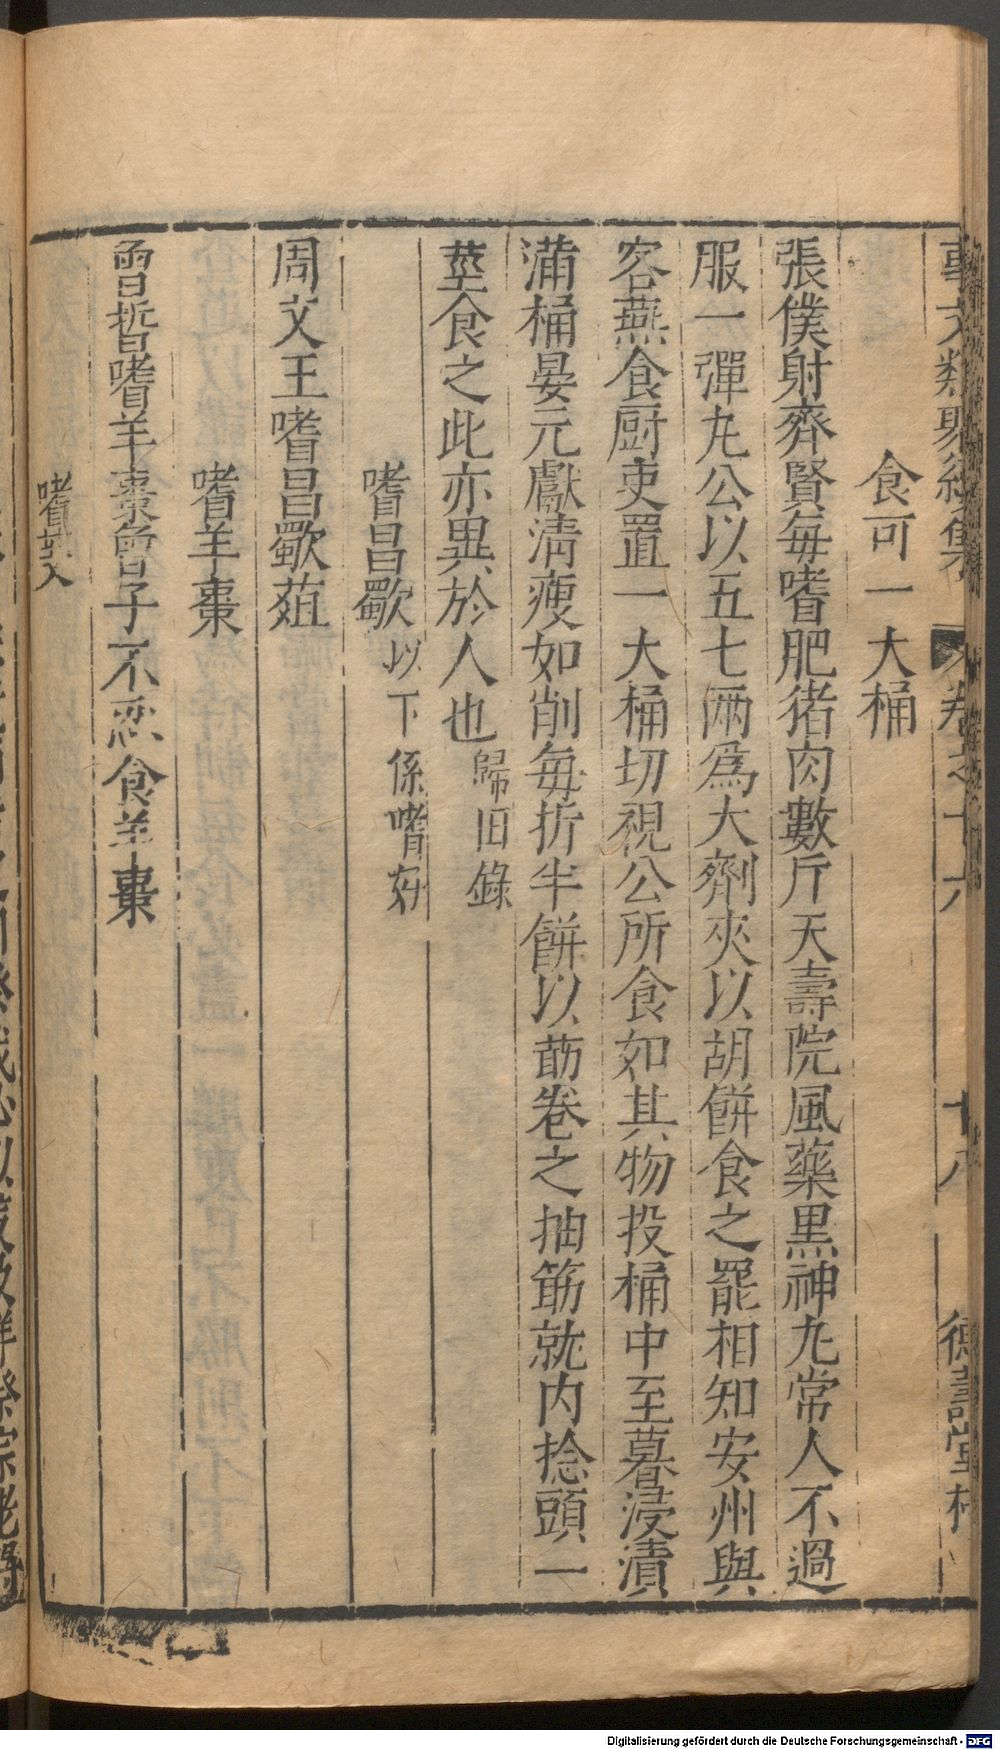 事文類聚續集 卷之十六 十八 德壽堂梓
食可一大桶
張僕射齊賢每嗜肥猪肉數斤天壽院風藥黑神丸常人不過
服一彈丸公以五七兩為大劑夾以胡餅食之罷相知安州與
客燕食厨吏置一大桶切視公所食如其物投桶中至暮浸漬
滿桶晏元獻清瘦如削每折半餅以莇卷之抽筋就內捻頭一
莖食之此亦異於人也歸田錄
嗜昌歜以下係嗜好
周文王嗜昌歜葅
嗜羊棗
曾晳嗜羊棗曾子不忍食羊棗
嗜芰
Digitalisierung gefördert durch die Deutsche Forschungsgemeinschaft - DFG